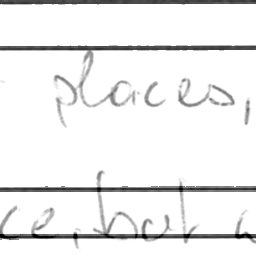 places,
ce, but